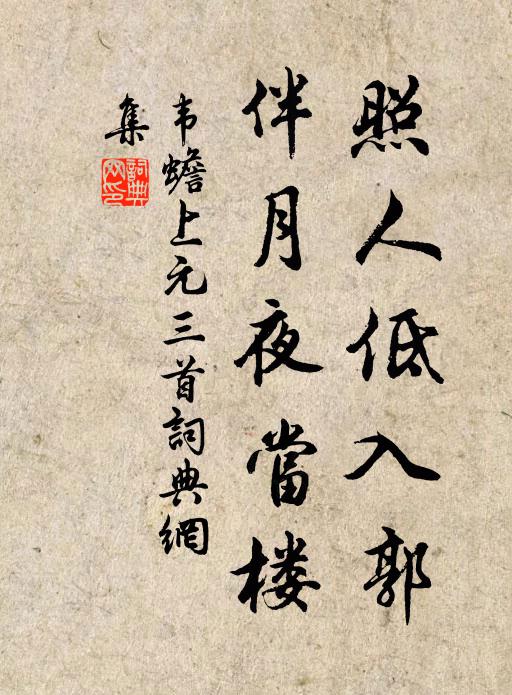 照人低入郭
伴月夜當楼
韦蟾上元三首詞典網
集
詞典
网印